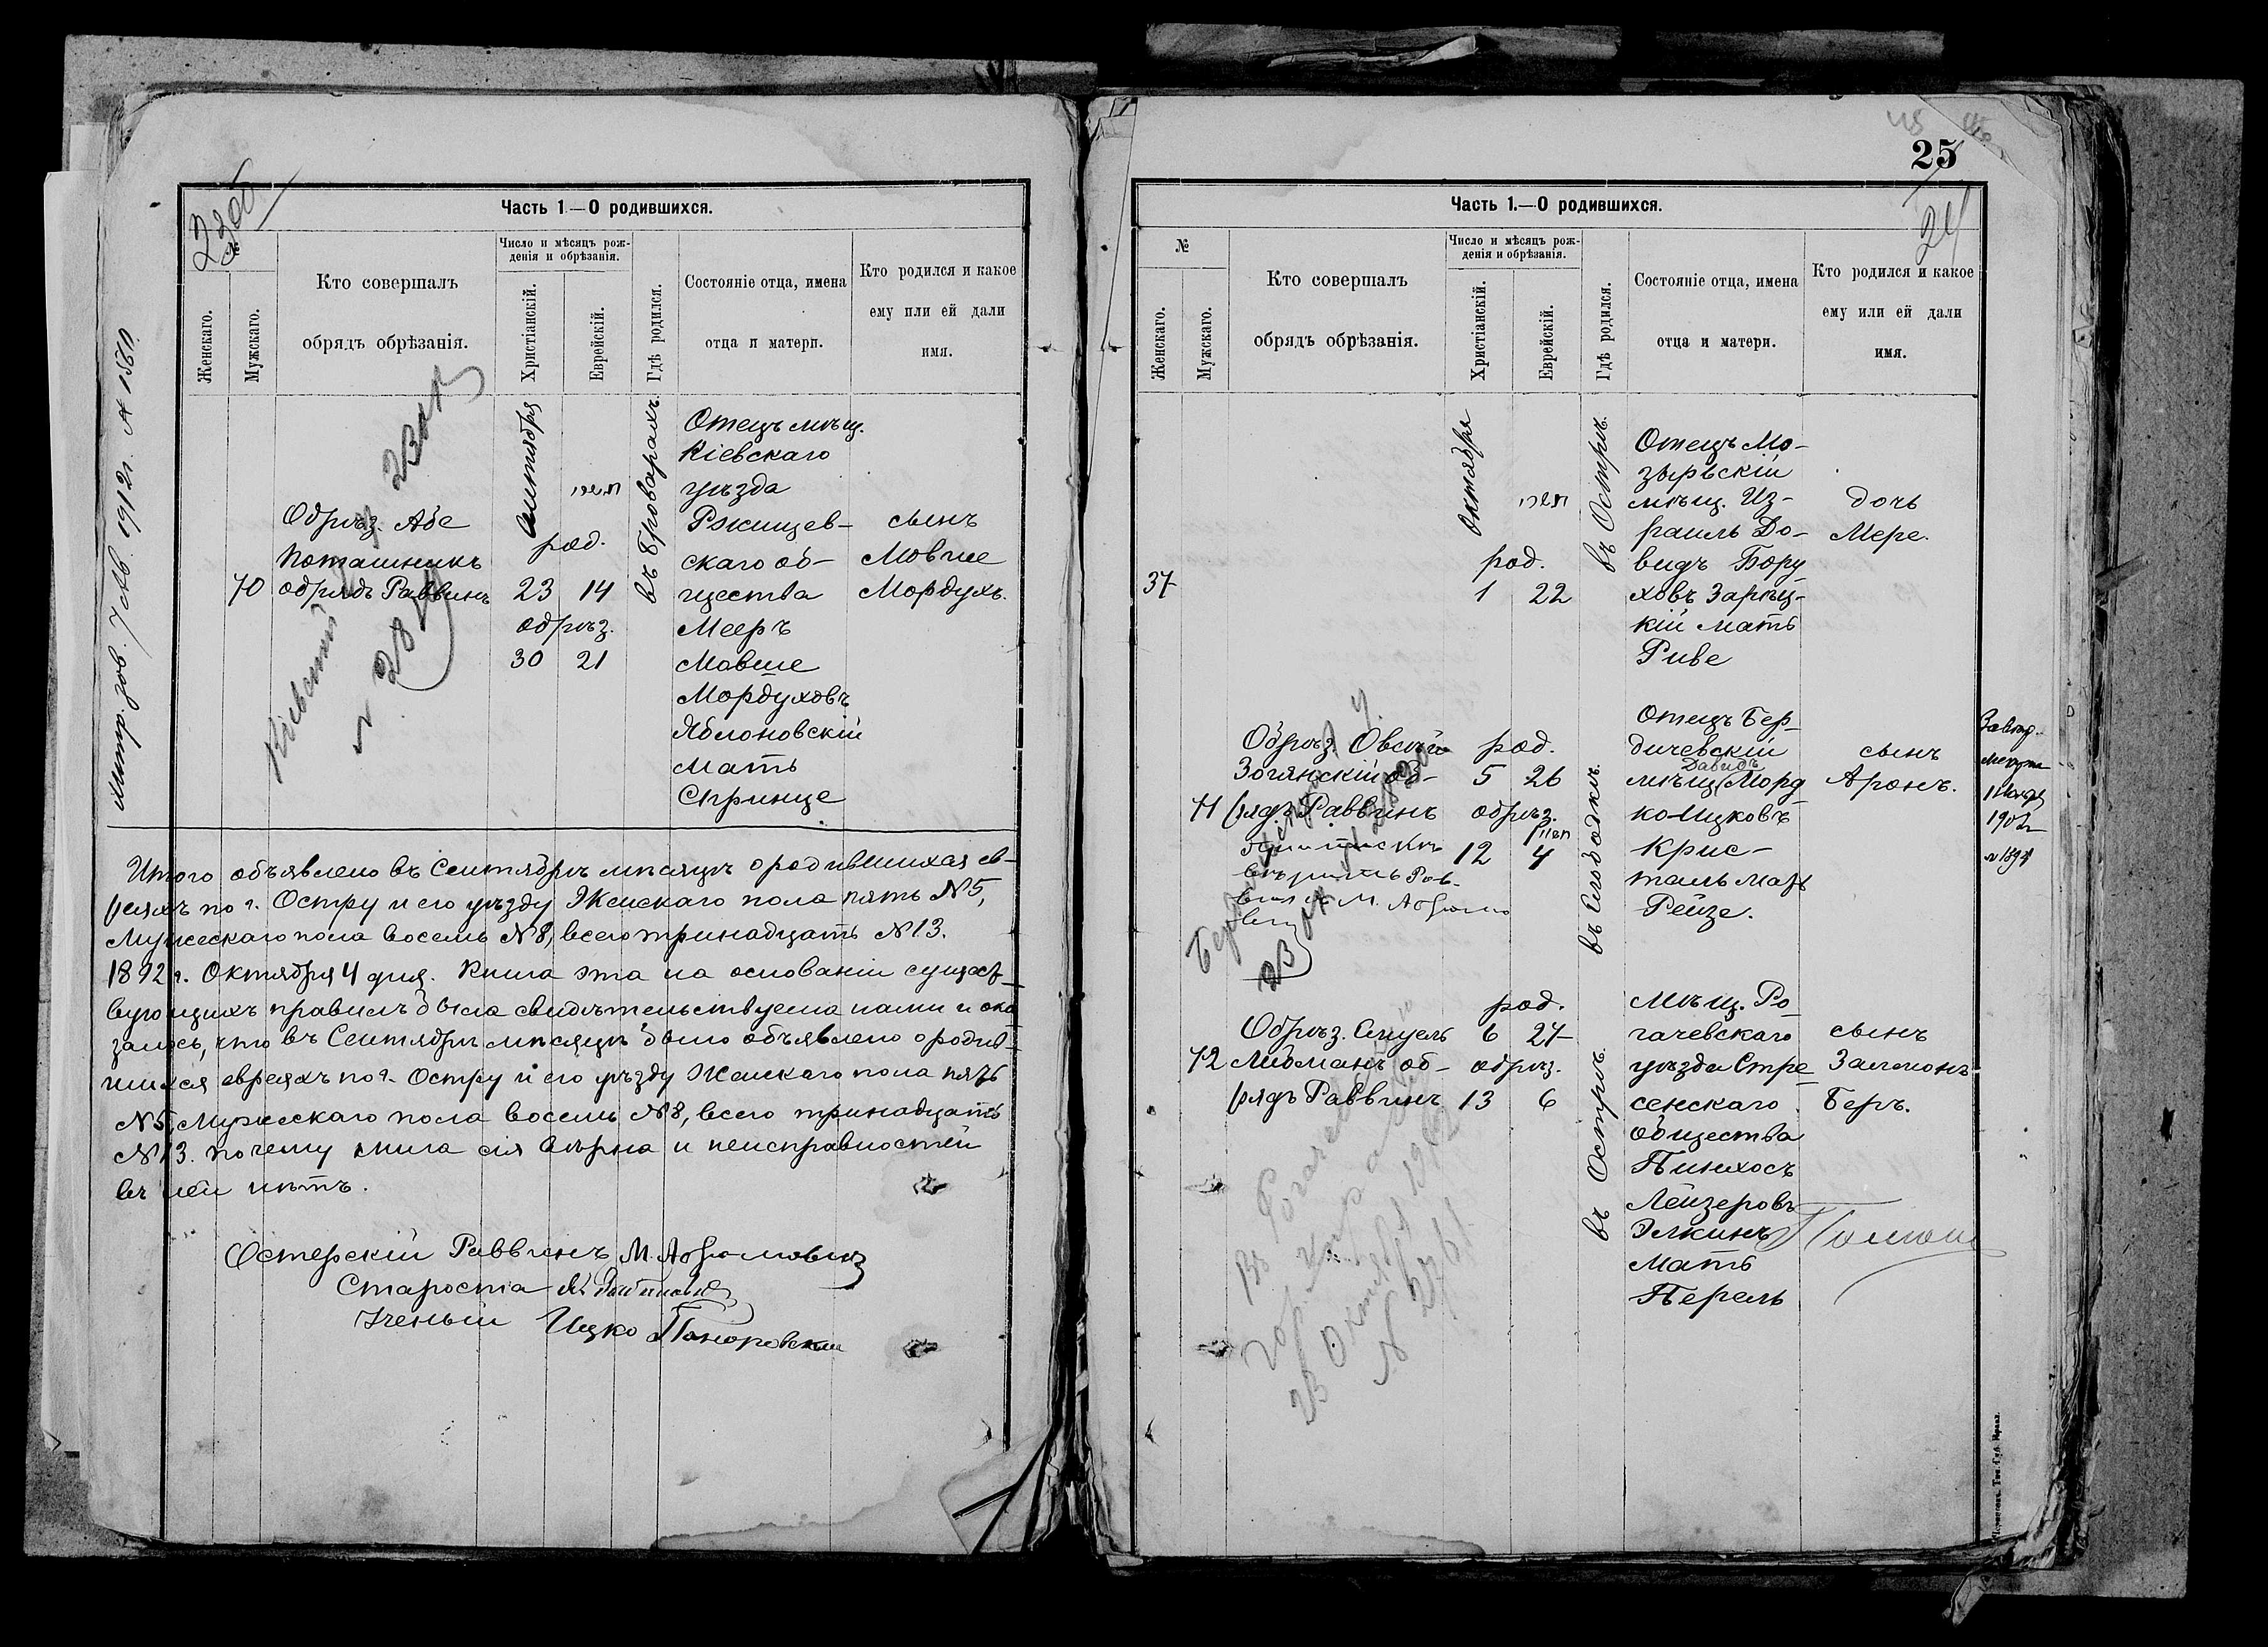 Часть 1—О родившихся.
Женскаго.
Мужскаго.
Кто совершалъ
обрядъ обрѣзанія.
Число и мѣсяцъ рож-
денія и обрѣзанія.
Христіанскій.
Еврейскій.
Гдѣ родился.
Состояніе отца, имена
отца и матери.
Кто родился и какое
ему или ей дали
имя.
70
Обрѣз. Абе
Поташникъ
обрядъ Раввинъ
род.
23 14
обрѣз.
30 21
въ Броварахъ.
Отецъ мѣщ.
Кіевскаго
уѣзда
Ржищев-
скаго об-
щества
Мееръ
Мовше
Мордуховъ
Яблоновскій
Мать
Спринце
сынъ
Мовше
Мордухъ.
Итого объявлено въ Сентябрѣ мѣсяцѣ о родившихся ев-
реяхъ по г. Остру и его уѣзду Женскаго пола пять №5,
Мужескаго пола восемь №8, всего тринадцать №13.
1892 г. Октября 4 дня. Книга эта на основаніи сущест-
вующихъ правилъ была свидѣтельствуема нами и ока-
залось, что въ Сентябрѣ мѣсяцѣ было объявлено о родив-
шихся евреяхъ по г. Остру и его уѣзду Женскаго пола пять
№5, Мужескаго пола восемь №8, всего тринадцать
№13. почему книга сія вѣрна и неисправностей
въ ней нѣтъ.
Остерскій Раввинъ М. Абрамовичъ
Староста
Ученый Ицко
25
24
Часть 1.—О родившихся.
№
Женскаго.
Мужскаго.
Кто совершалъ
обрядъ обрѣзанія.
Число и мѣсяцъ рож-
денія и обрѣзанія.
Христіанскій.
Еврейскій.
Гдѣ родился.
Состояніе отца, имена
отца и матери.
Кто родился и какое
ему или ей дали
имя.
37
Октября
род.
1 22
въ Острѣ.
Отецъ Мо-
зырьскій
мѣщ. Из-
раиль До-
видъ Бору
ховъ Зарѣц-
кій Мать
Риве
дочь
Мере.
71
Обрѣз. Овсѣй
об-
рядъ Раввинъ
род.
5 26
обрѣз.
12 4
въ Слободкѣ.
Отецъ Бер-
дичевскій
Давидъ
мѣщ. Морд
ко Ицковъ
Крис-
таль Мать
Рейзе.
сынъ
Аронъ.
72
Обрѣз. Шмуель
Либманъ об-
рядъ Раввинъ
род.
6 27
обрѣз.
13 6
въ Острѣ.
Мѣщ. Ро
гачевскаго
уѣзда Стре
сенскаго
общества
Пинхосъ
Лейзеровъ
Элкинъ
Мать
Перель
сынъ
Залмонъ
Беръ.